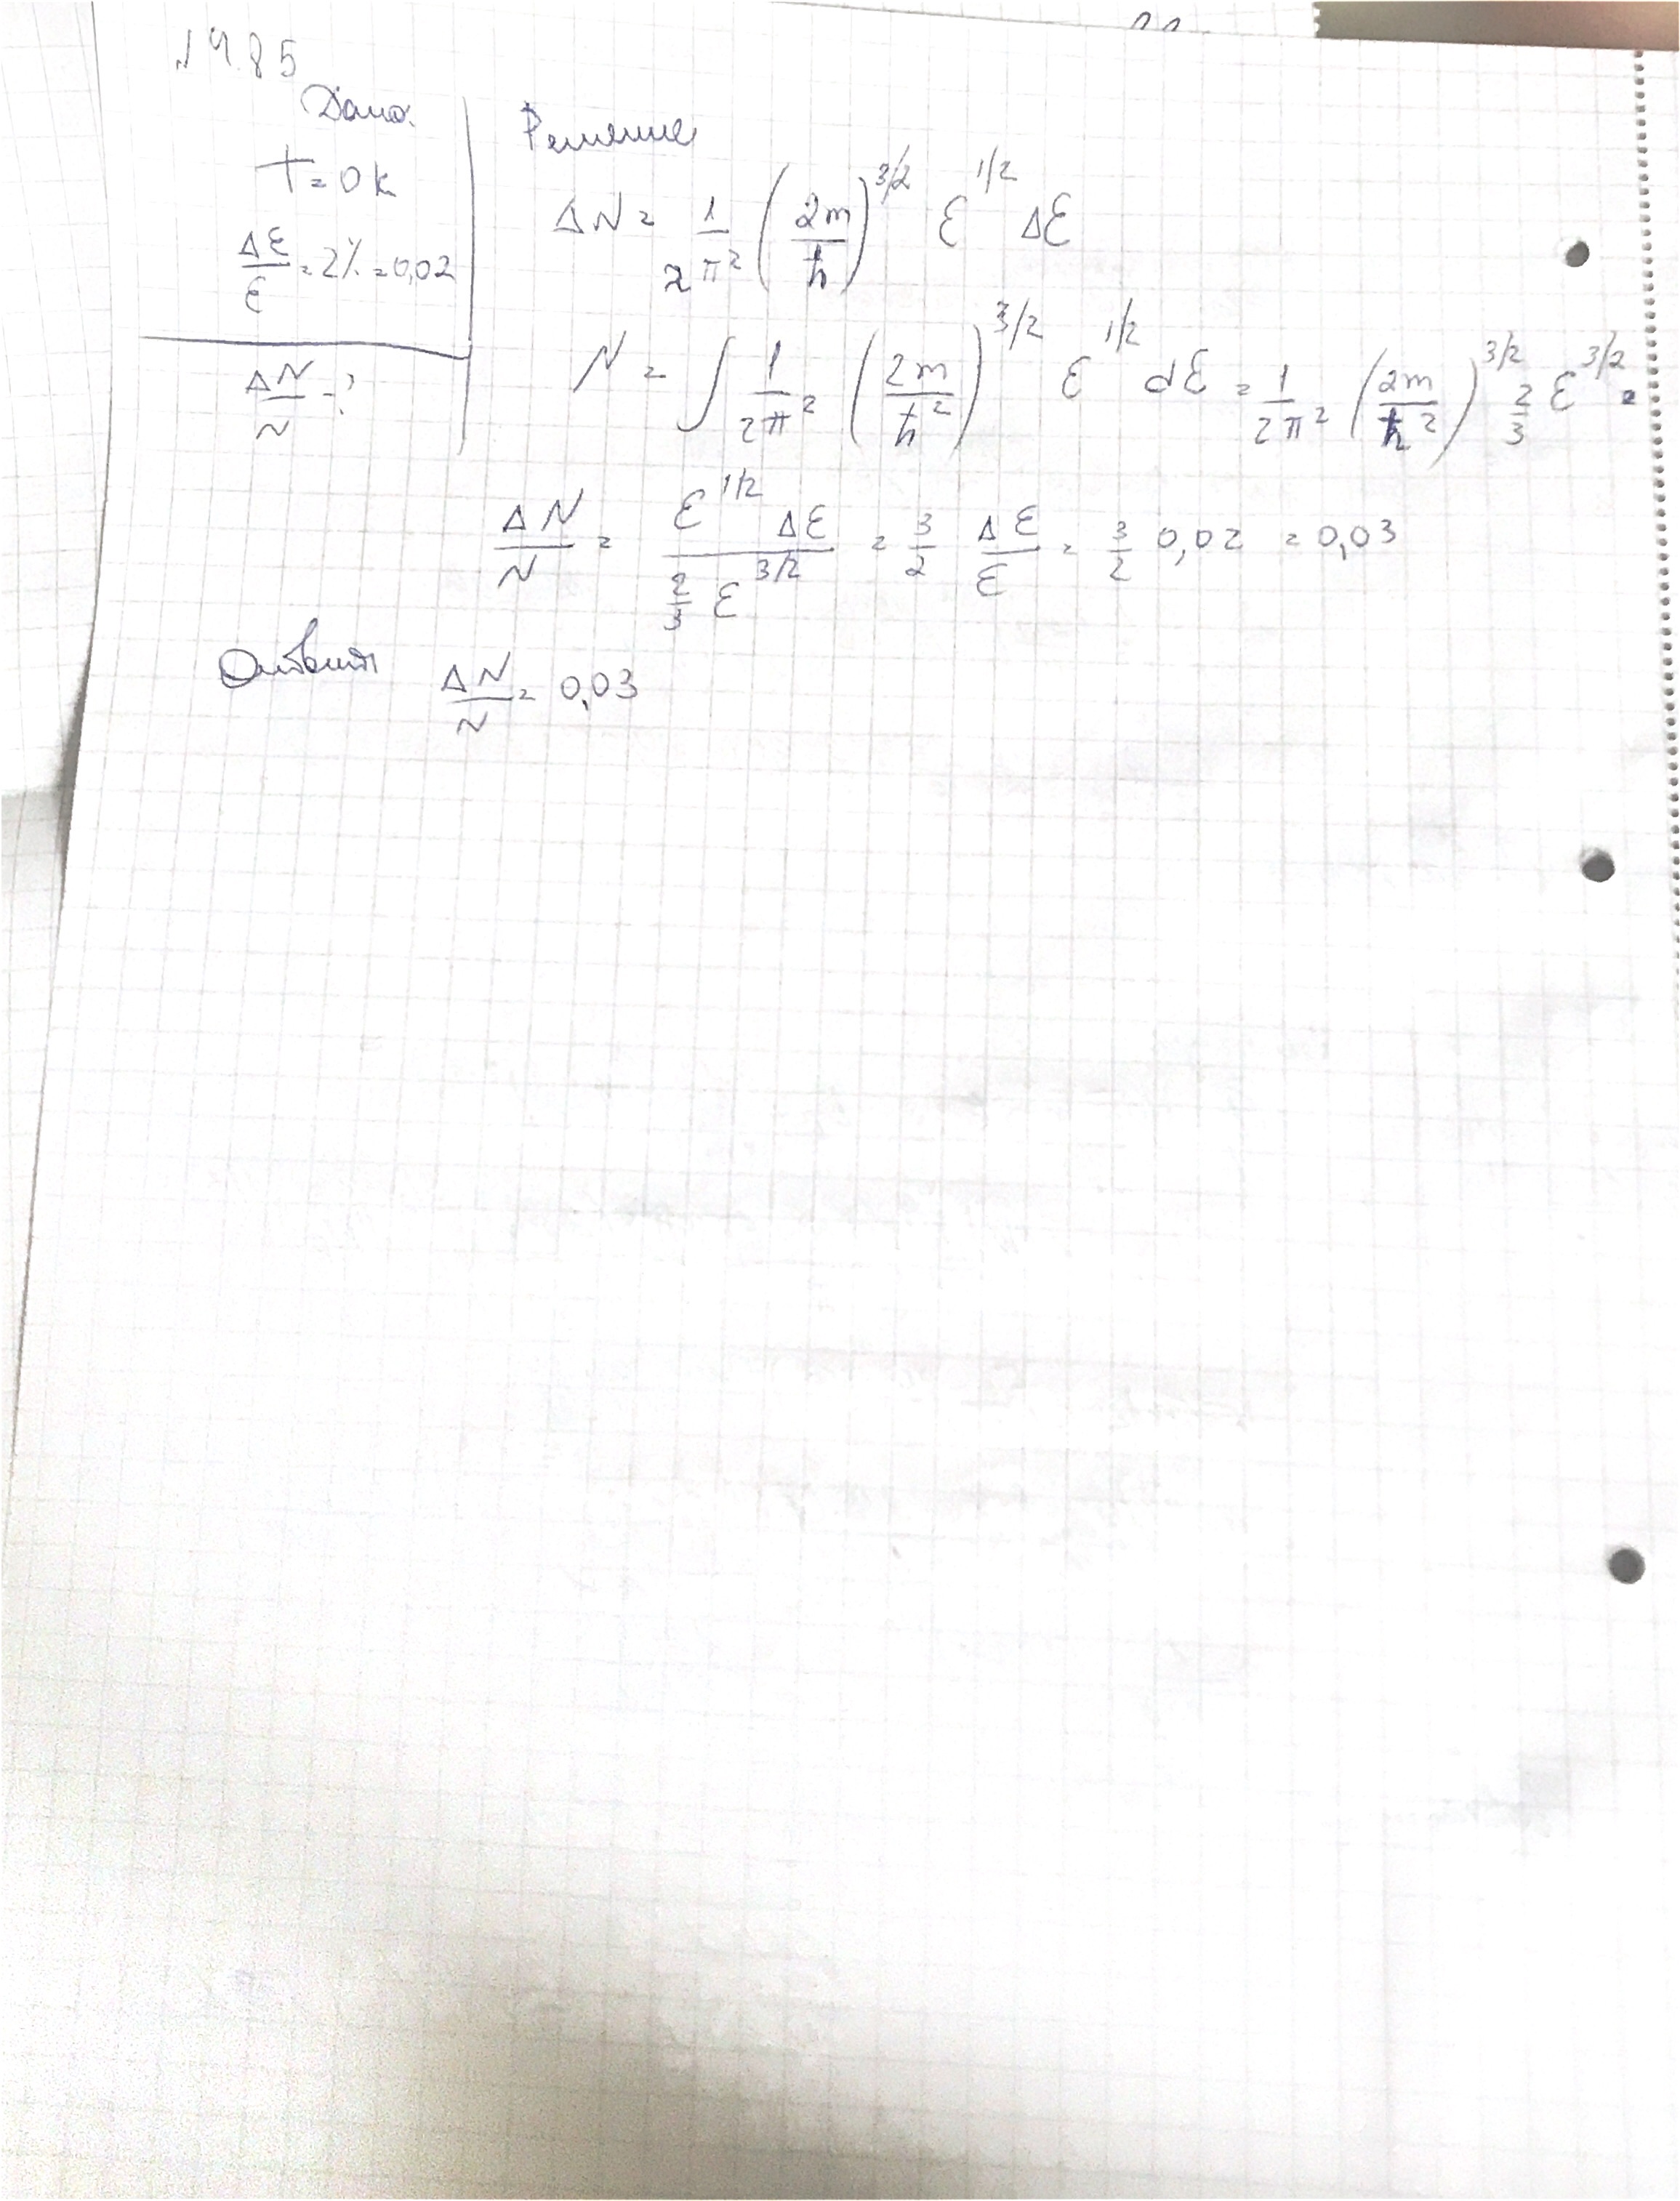 № 4.85
Дано:
T = 0 K
Δε/ε = 2% = 0,02
ΔN/N - ?
Решение
ΔN = 1/(2π²) (2m/ħ)^(3/2) ε^(1/2) Δε
N = ∫ 1/(2π²) (2m/ħ²)^(3/2) ε^(1/2) dε = 1/(2π²) (2m/ħ²)^(3/2) 2/3 ε^(3/2) =
ΔN/N = (ε^(1/2) Δε)/(2/3 ε^(3/2)) = 3/2 Δε/ε = 3/2 0,02 = 0,03
Ответ ΔN/N = 0,03